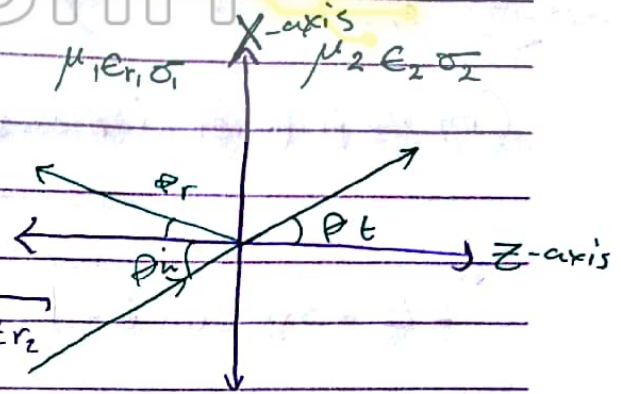 X-axis
μ₁ εr₁ σ₁
μ₂ ε₂ σ₂
θr
θt
θi
Z-axis
εr₂